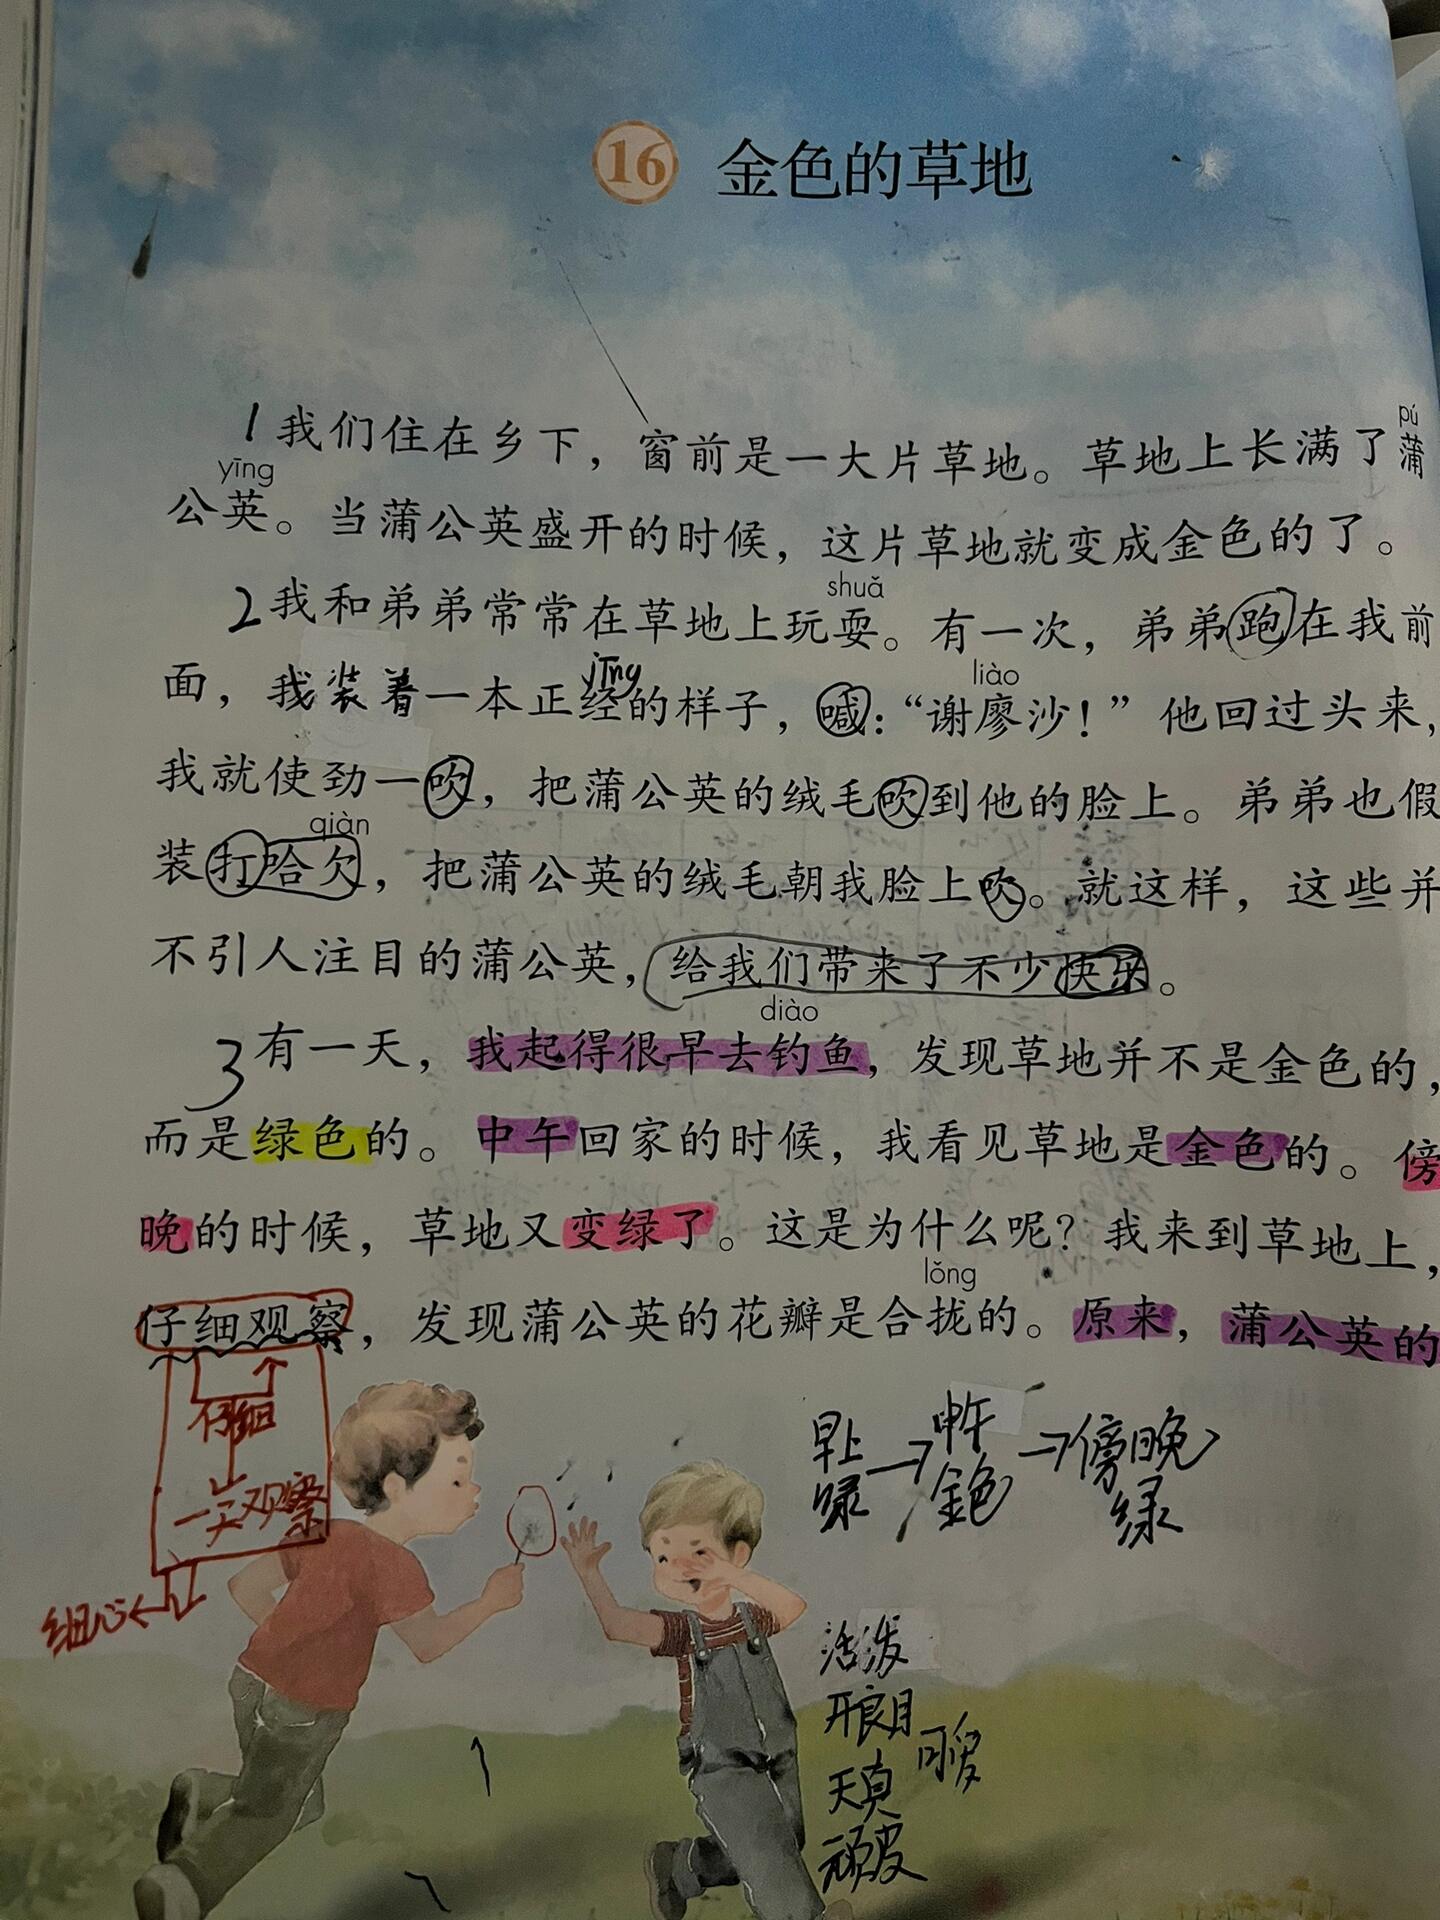 16 金色的草地
1我们住在乡下，窗前是一大片草地。草地上长满了蒲
pú
yīng
公英。当蒲公英盛开的时候，这片草地就变成金色的了。
shuǎ
2我和弟弟常常在草地上玩耍。有一次，弟弟跑在我前
jīng
liào
面，我装着一本正经的样子，喊：“谢廖沙！”他回过头来，
我就使劲一吹，把蒲公英的绒毛吹到他的脸上。弟弟也假
qiàn
装打哈欠，把蒲公英的绒毛朝我脸上吹。就这样，这些并
不引人注目的蒲公英，给我们带来了不少快乐。
diào
3有一天，我起得很早去钓鱼，发现草地并不是金色的，
而是绿色的。中午回家的时候，我看见草地是金色的。傍
晚的时候，草地又变绿了。这是为什么呢？我来到草地上，
lǒng
仔细观察，发现蒲公英的花瓣是合拢的。原来，蒲公英的
仔细
一天观察
细心
早上→中午→傍晚
绿 金色 绿
活泼
开朗
可爱
天真
顽皮